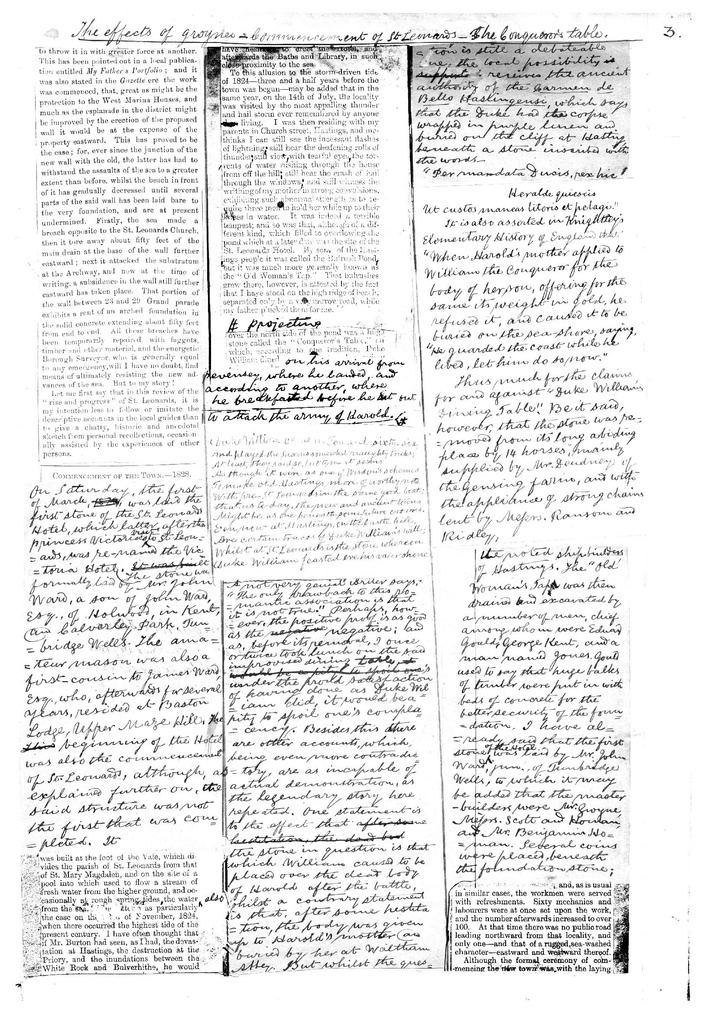 The effects of groynes – Commencement of St Leonards – The Conqueror's table. 3.
to throw it in with greater force at another.
This has been pointed out in a local publi-
cation entitled My Father's Portfolio; and it
was also stated in the Gazette ere the work
was commenced, that, great as might be the
protection to the West Marina Houses, and
much as the esplanade in the district might
be improved by the erection of the proposed
wall it would be at the expense of the
property eastward. This has proved to be
the case; for, ever since the junction of the
new wall with the old, the latter has had to
withstand the assaults of the sea to a greater
extent than before, whilst the beach in front
of it has gradually decreased until several
parts of the said wall has been laid bare to
the very foundation, and are at present
undermined. Firstly, the sea made a
breach opposite to the St. Leonards Church,
then it tore away about fifty feet of the
main drain at the base of the wall further
eastward; next it attacked the substratum
at the Archway, and now at the time of
writing, a subsidence in the wall still further
eastward has taken place. That portion of
the wall between 23 and 29 Grand parade
exhibits a rent of an arched foundation in
the solid concrete extending about fifty feet
from end to end. All these breaches have
been temporarily repaired with faggots,
timber and other material, and the energetic
Borough Surveyor, who is generally equal
to any emergency, will I have no doubt, find
means of ultimately resisting the new ad-
vances of the sea. But to my story!
Let me first say that in this review of the
"rise and progress" of St. Leonards, it is
my intention less to follow or imitate the
descriptive accounts in the local guides than
to give a chatty, historic and anecdotal
sketch from personal recollections, occasion-
ally assisted by the experiences of other
persons.
COMMENCEMENT OF THE TOWN.—1828.
On Saturday, the first
of March, was laid the
first stone of the St. Leonards
Hotel, which latter, after the
princess Victoria's visit to St. Leon-
=ards, was re-named the Vic-
=toria Hotel. It was built The stone was
formally laid by Mr. John
Ward, a son of John Ward,
Esq., of Holwood, in Kent,
and Calverley Park, Tun-
=bridge Wells. The ama-
=teur mason was also a
first-cousin to James Ward,
Esq., who, afterwards for several
years, resided at Baston
Lodge, Upper Maze Hill. The
beginning of the Hotel
was also the commencement
of St. Leonards, although, as
explained further on, the
said structure was not
the first that was com-
=pleted. It
was built at the foot of the Vale, which di-
vides the parish of St. Leonards from that
of St. Mary Magdalen, and on the site of a
pool into which used to flow a stream of
fresh water from the higher ground, and oc-
casionally at rough spring tides, the water also
as particularly
the case on the of November, 1824,
when there occurred the highest tide of the
present century. I have often thought that
if Mr. Burton had seen, as I had, the devas-
tation at Hastings, the destruction at the
Priory, and the inundations between the
White Rock and Bulverhithe, he would
have hesitated to erect the Hotel, and
afterwards the Baths and Library, in such
close proximity to the sea.
To this allusion to the storm-driven tide
of 1824—three and a half years before the
town was begun—may be added that in the
same year, on the 14th of July, the locality
was visited by the most appalling thunder
and hail storm ever remembered by anyone
living. I was then residing with my
parents in Church street, Hastings, and me-
thinks I can still see the incessant flashes
of lightning; still hear the deafening rolls of
thunder; still view, with tearful eyes, the tor-
rents of water rushing through the house
from off the hill; still hear the crash of hail
through the windows; and still witness the
writhing of my mother in strong convulsions,
exhibiting such abnormal strength as to re-
quire three men to hold her while up to their
knees in water. It was indeed a terrible
tempest; and so was that, although of a dif-
ferent kind, which filled to overflowing the
pond which at a later date was the site of the
St. Leonards Hotel. By some of the Hast-
ings people it was called the Bulrush Pond,
but it was much more generally known as
the "Old Woman's Tap." That bulrushes
grew there, however, is attested by the fact
that I have stood on the high ridge of beach,
separated only by a very narrow road, while
my father plucked them for me.
# Projecting
over the north side of the pond was a huge
stone called the "Conqueror's Table," on
which, according to one tradition, Duke
William dined
on his arrival from
Pevensey, where he landed, and
according to another, where
he breakfasted before he set out
to attack the army of Harold.
Duke William
A not very genial writer says,
"The only drawback to this ro-
=mantic association is that
it is not true." Perhaps, how-
=ever, the positive proof is as good
as the negative; and
as, before its removal, I once
or twice took lunch on the said
improvised dining table
under the proud satisfaction
of having done as Duke Wil-
=liam did, it would be a
pity to spoil one's compla-
=cency. Besides this there
are other accounts, which,
being even more contradic-
=tory, are as incapable of
actual demonstration, as
the legendary story, here
repeated. One statement is
to the effect that after some
hesitation, the dead bod
the stone in question is that
which William caused to be
placed over the dead body
of Harold after the battle,
whilst a contrary statement
is that, after some hesita-
=tion, the body was given
up to Harold's mother, and
buried by her at Waltham
Abbey. But whilst the ques-
=tion is still a debateable
one, the local possibility is
receives the ancient
authority of the Carmen de
Bello Hastingensi, which says
that the Duke had the corpse
wrapped in purple linen and
buried on the cliff at Hastings
beneath a stone inscribed with
the words—
"Per mandata Ducis, rex hic
Heralde quiescis
Ut custos maneas litoris et pelagi."
It is also asserted in Knightley's
Elementary History of England that
"When Harold's mother applied to
William the Conqueror for the
body of her son, offering for the
same its weight in gold, he
refused it, and caused it to be
buried on the sea-shore, saying,
"He guarded the coast while he
lived, let him do so now."
Thus much for the claims
for and against "Duke William's
Dining Table". Be it said,
however, that the stone was re-
=moved from its long abiding
place by 14 horses, mainly
supplied by Mr. Deudney of
the Gensing farm, and with
the appliance of strong chains
lent by Messrs. Ransom and
Ridley,
the noted shipbuilders
of Hastings. The "Old
Woman's Tap" was then
drained and excavated by
a number of men, chief
among whom were Edward
Gould, George Kent, and a
man named Jones. Gould
used to say that huge balks
of timber were put in with
beds of concrete for the
better security of the foun-
=dation. I have al-
=ready said that the first
stone of the Hotel was laid by Mr. John
Ward, jun., of Tunbridge
Wells, to which it may
be added that the master
-builders, were Mr. Gwynne,
Messrs. Scott and Homan,
and Mr. Benjamin Ho-
=man. Several coins
were placed beneath
the foundation stone;
and, as is usual
in similar case, the workmen were served
with refreshments. Sixty mechanics and
labourers were at once set upon the work,
and the number afterwards increased to over
100. At that time there was no public road
leading northward from that locality, and
only one—and that of a rugged, sea-washed
character—eastward and westward thereof.
Although the formal ceremony of com-
mencing the new town was with the laying